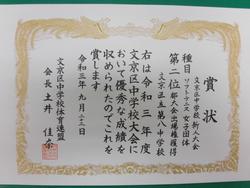 賞状
文京区中学校新人大会
種目 ソフトテニス 女子団体
第二位 都大会出場権獲得
文京区立第八中学校
右は令和三年度
文京区中学校大会に
おいて優秀な成績を
収められたのでこれを
賞します
令和三年九月
文京区中学校体育連盟
会長 土井 佳